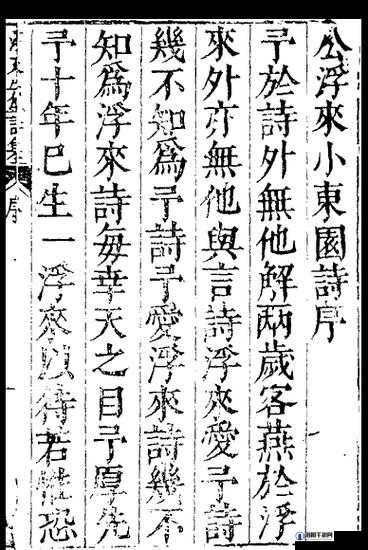 公浮來小東園詩序
予於詩外無他解兩歲客燕於浮
來外亦無他與言詩浮來愛予詩
幾不知爲予詩予愛浮來詩幾不
知爲浮來詩每幸天之目予厚先
予十年巳生一浮來以待若惟恐
詩集
序